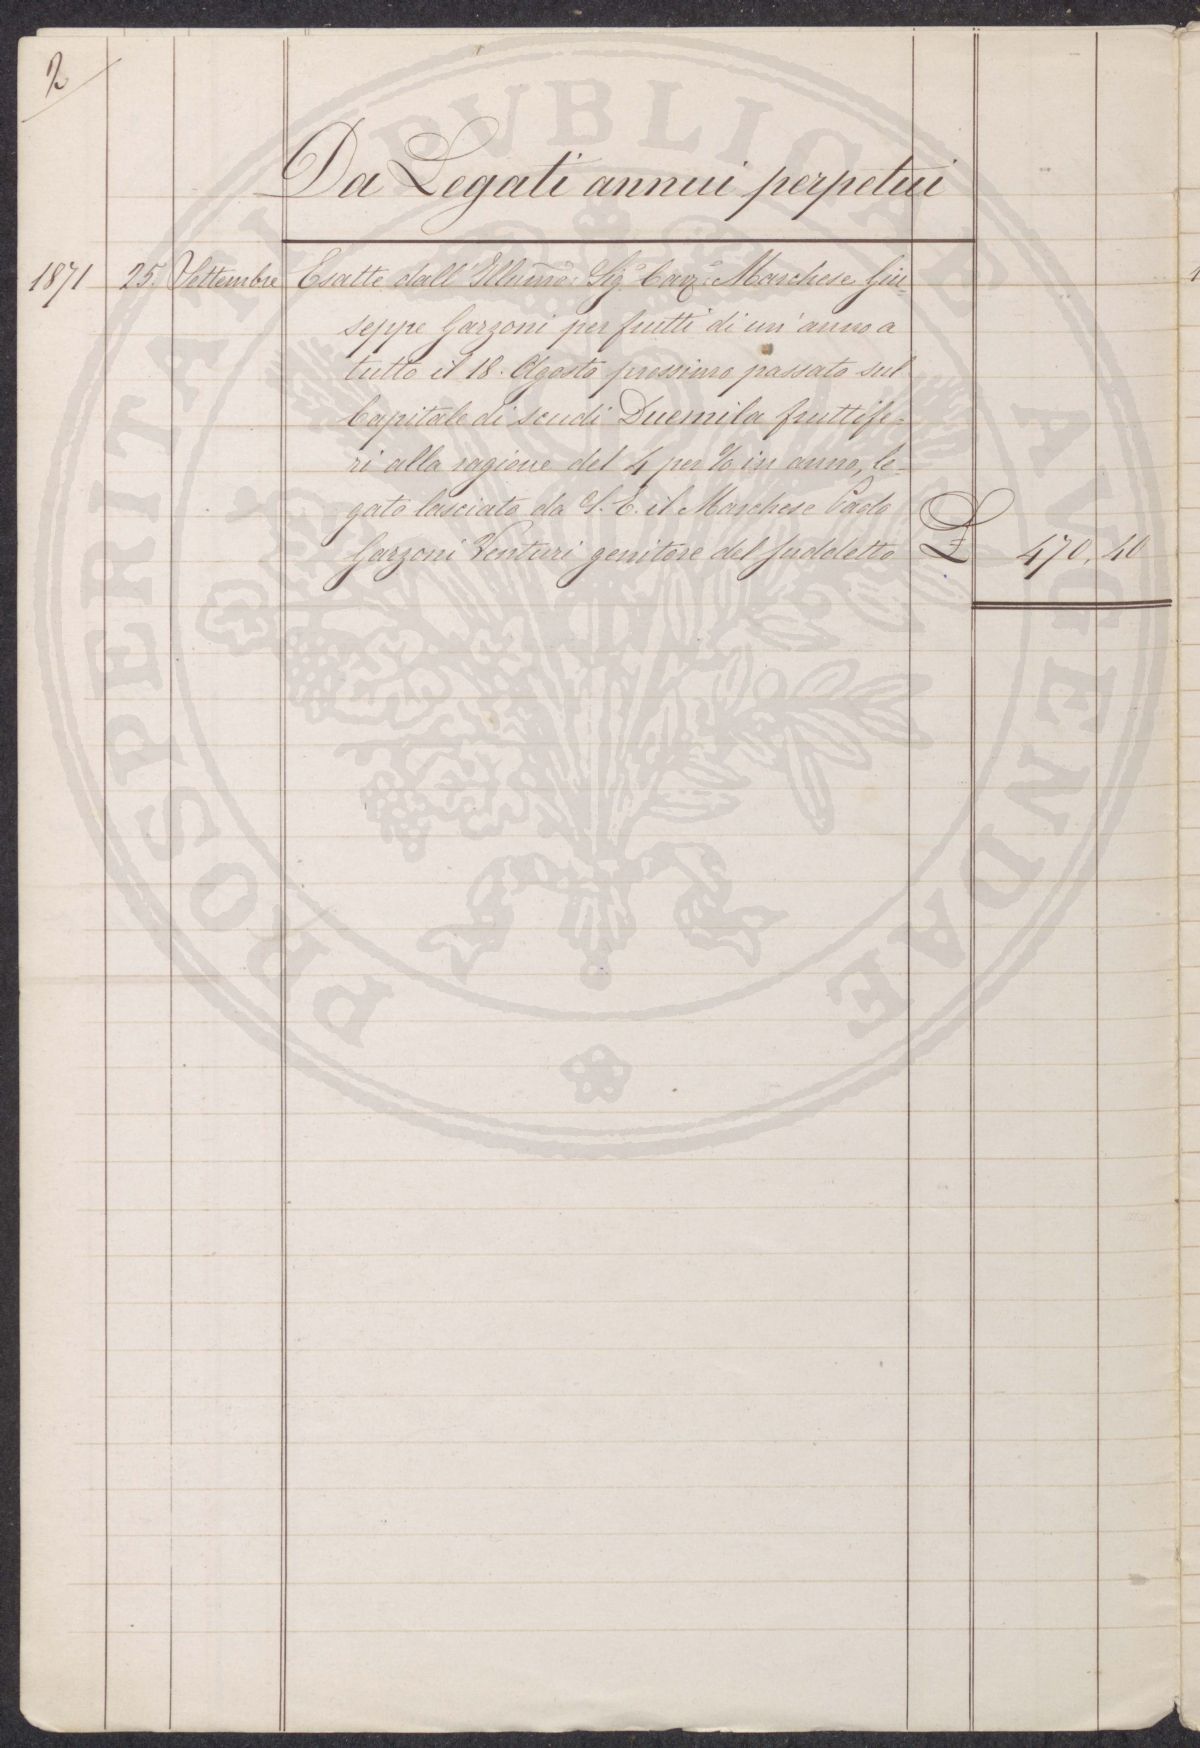 2
Da Legati annui perpetui
1871 25. Settembre Esatte dall' Illumo: Sigr Cavr: Marchese Giu=
seppe Garzoni per frutti di un' anno a
tutto il 18. Agosto prossimo passato sul
Capitale di scudi Duemila fruttife=
ri alla ragione del 4 per % in anno, le=
gato lasciato da S. E. il Marchese Paolo
Garzoni Venturi genitore del suddetto £ 470. 40
PROSPERITATI PVBLICAE AVGENDAE